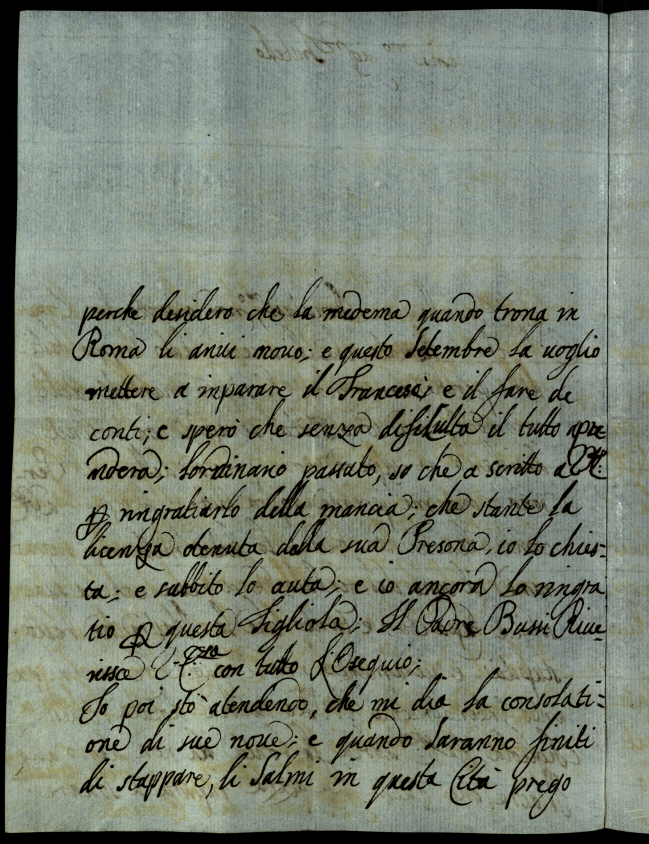 perche desidero che la medema quando trona in
Roma li arivi novo; e questo Setembre la voglio
mettere a inparare il Francese; e il fare de
conti; e spero che senza difficulta il tutto apre
ndera; lordinario passato, so che a scritto a
p ringratiarlo della mancia; che stante la
licenza otenuta dalla sua Presona, io lo chies=
ta; e subbito lo auta; e io ancora lo ringra
tio p questa Figliola; Il Padre Bussi Rive
rissce con tutto l'Osequio;
Io poi stò atendendo, che mi dia la consolati=
one di sue nove; e quando saranno finiti
di stappare, li Salmi in questa Cità prego